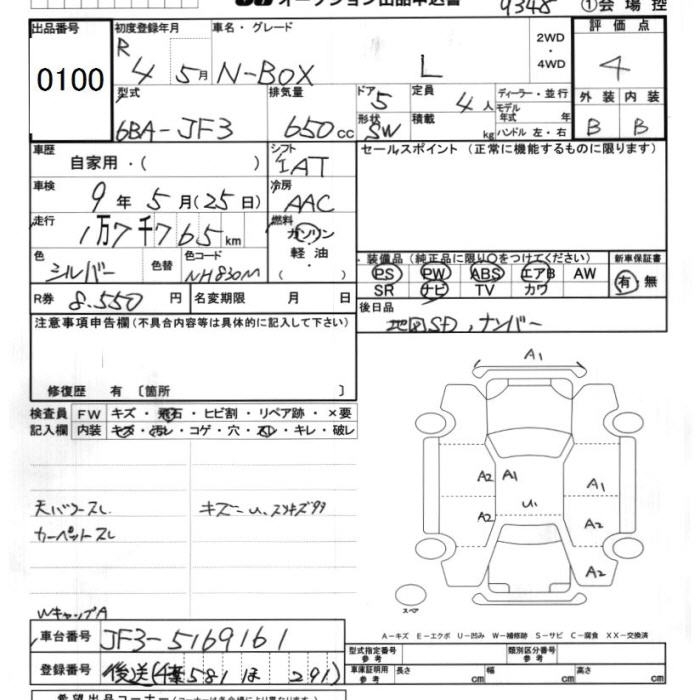 オークション出品申込書 9348 ①会場控
出品番号 0100
初度登録年月 R 4 5月
車名・グレード N-BOX L
2WD・4WD
評価点 4
型式 6BA-JF3
排気量 650cc
ドア 5
形状 SW
定員 4人
積載 kg
ディーラー・並行
モデル年式 年
ハンドル 左・右
外装 B
内装 B
車歴 自家用・( )
シフト IAT
セールスポイント (正常に機能するものに限ります)
車検 9年 5月(25日)
冷房 AAC
走行 1万7千765km
燃料 ガソリン 軽油・( )
色 シルバー
色替
色コード NH830M
装備品(純正品に限り○をつけてください)
PS PW ABS エアB AW
SR ナビ TV カワ
新車保証書 有・無
R券 8.550円
名変期限 月 日
後日品 地図SD,ナンバー
注意事項申告欄(不具合内容等は具体的に記入して下さい)
修復歴 有 〔箇所 〕
検査員記入欄
FW キズ・飛石・ヒビ割・リペア跡・×要
内装 キズ・汚レ・コゲ・穴・スレ・キレ・破レ
A1
A2 A1 A1
A2 U1 A2
A2
カーペットスレ
WキャップA
スペア
A-キズ E-エクボ U-凹み W-補修跡 S-サビ C-腐食 XX-交換済
車台番号 JF3-5169161
登録番号 後送(千葉581ほ291)
型式指定番号 参考
類別区分番号 参考
車庫証明用 参考 長さ cm 幅 cm 高さ cm
希望出品コーナー